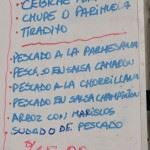 • CEBICHE
• CHUPE O PARIHUELA
• TIRADITO
• PESCADO A LA PARMESANA
• PESC. EN SALSA CAMARON
• PESCADO A LA CHORRILLANA
• PESCADO EN SALSA CHAMPIÑON
• ARROZ CON MARISCOS
• SUDADO DE PESCADO